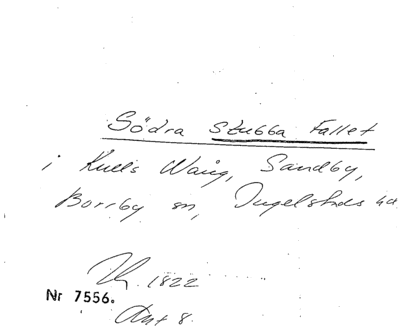 Södra Stubba Fallet
i Kulls Wång, Sandby,
Borrby sn, Ingelstads hd
1822
Nr 7556.
Akt 8.